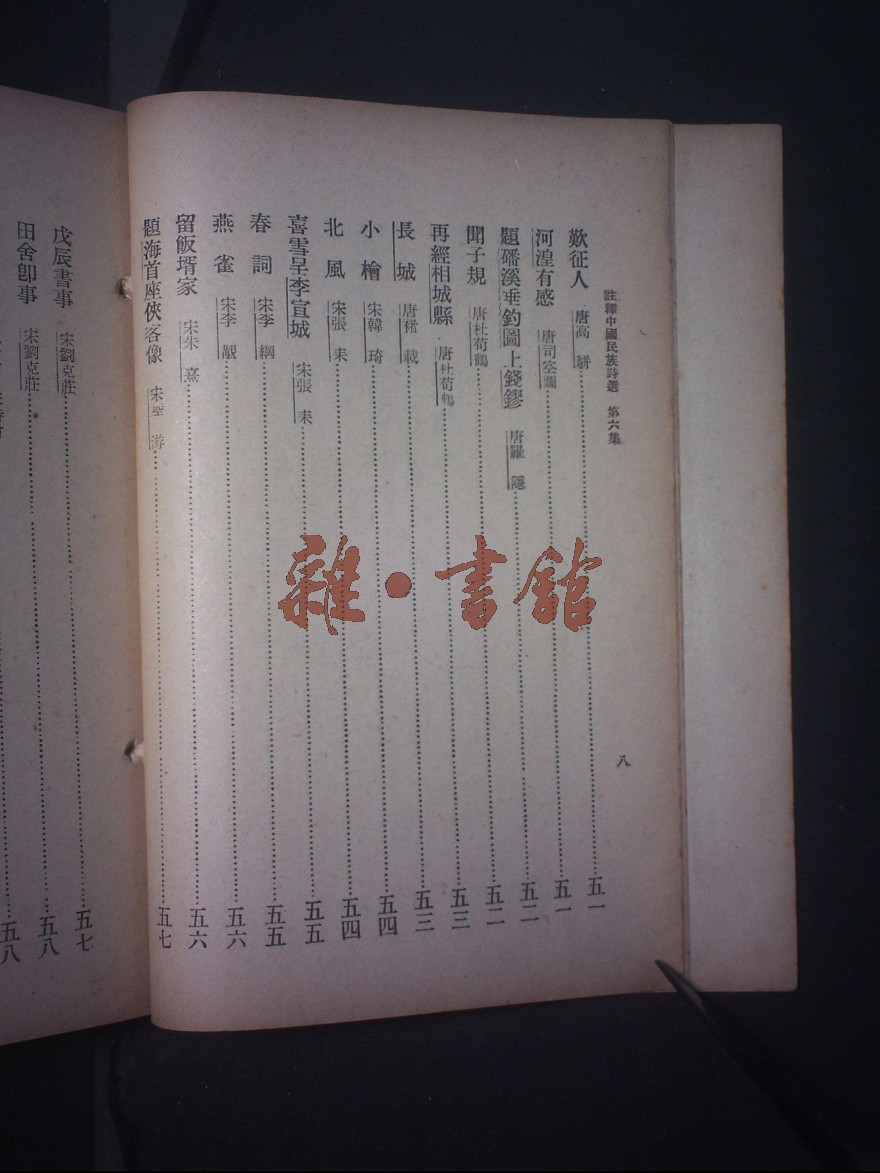 註釋中國民族詩選 第六集
八
歎征人 唐高駢 五一
河湟有感 唐司空圖 五一
題磻溪垂釣圖上錢鏐 唐羅隱 五二
聞子規 唐杜荀鶴 五二
再經相城縣 唐杜荀鶴 五三
長城 唐褚載 五三
小檜 宋韓琦 五四
北風 宋張耒 五四
喜雪呈李宣城 宋張耒 五五
春詞 宋李綱 五五
燕雀 宋李覯 五六
留飯壻家 宋朱熹 五六
題海首座俠客像 宋 游 五七
戊辰書事 宋劉克莊 五七
田舍卽事 宋劉克莊 五八
五八
雜·書館